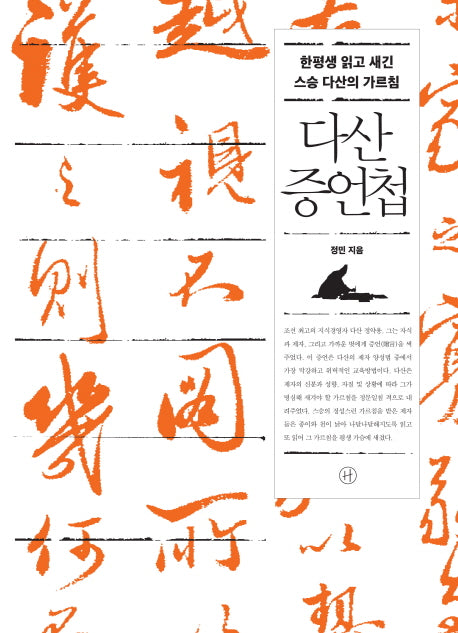 한평생 읽고 새긴
스승 다산의 가르침
다산
증언첩
정민 지음
조선 최고의 지식경영자 다산 정약용. 그는 자식
과 제자, 그리고 가까운 벗에게 증언(贈言)을 써
주었다. 이 증언은 다산의 제자 양성법 중에서
가장 막강하고 위력적인 교육방법이다. 다산은
제자의 신분과 성향, 자질 및 상황에 따라 그가
명심해 새겨야 할 가르침을 정문일침 격으로 내
려주었다. 스승의 정성스런 가르침을 받은 제자
들은 종이와 천이 닳아 너덜너덜해지도록 읽고
또 읽어 그 가르침을 평생 가슴에 새겼다.
H
越
視
不
圖
所
護
之
則
幾
何
以
想
寬
之